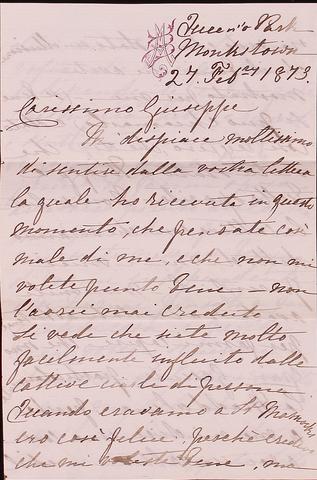 Queen's Park
Monkstown
27. Feb.ry 1873.
Carissimo Giuseppe
Mi dispiace moltissimo
di sentire dalla vostra lettera
la quale ho ricevuta in questo
momento, che pensate così
male di me, e che non mi
volete punto bene — non
l'avrei mai creduto
Si vede che siete molto
facilmente influito dalle
cattive di persone
Quando eravamo a St
ero così felice, perchè credevo
che mi voleste bene, ma